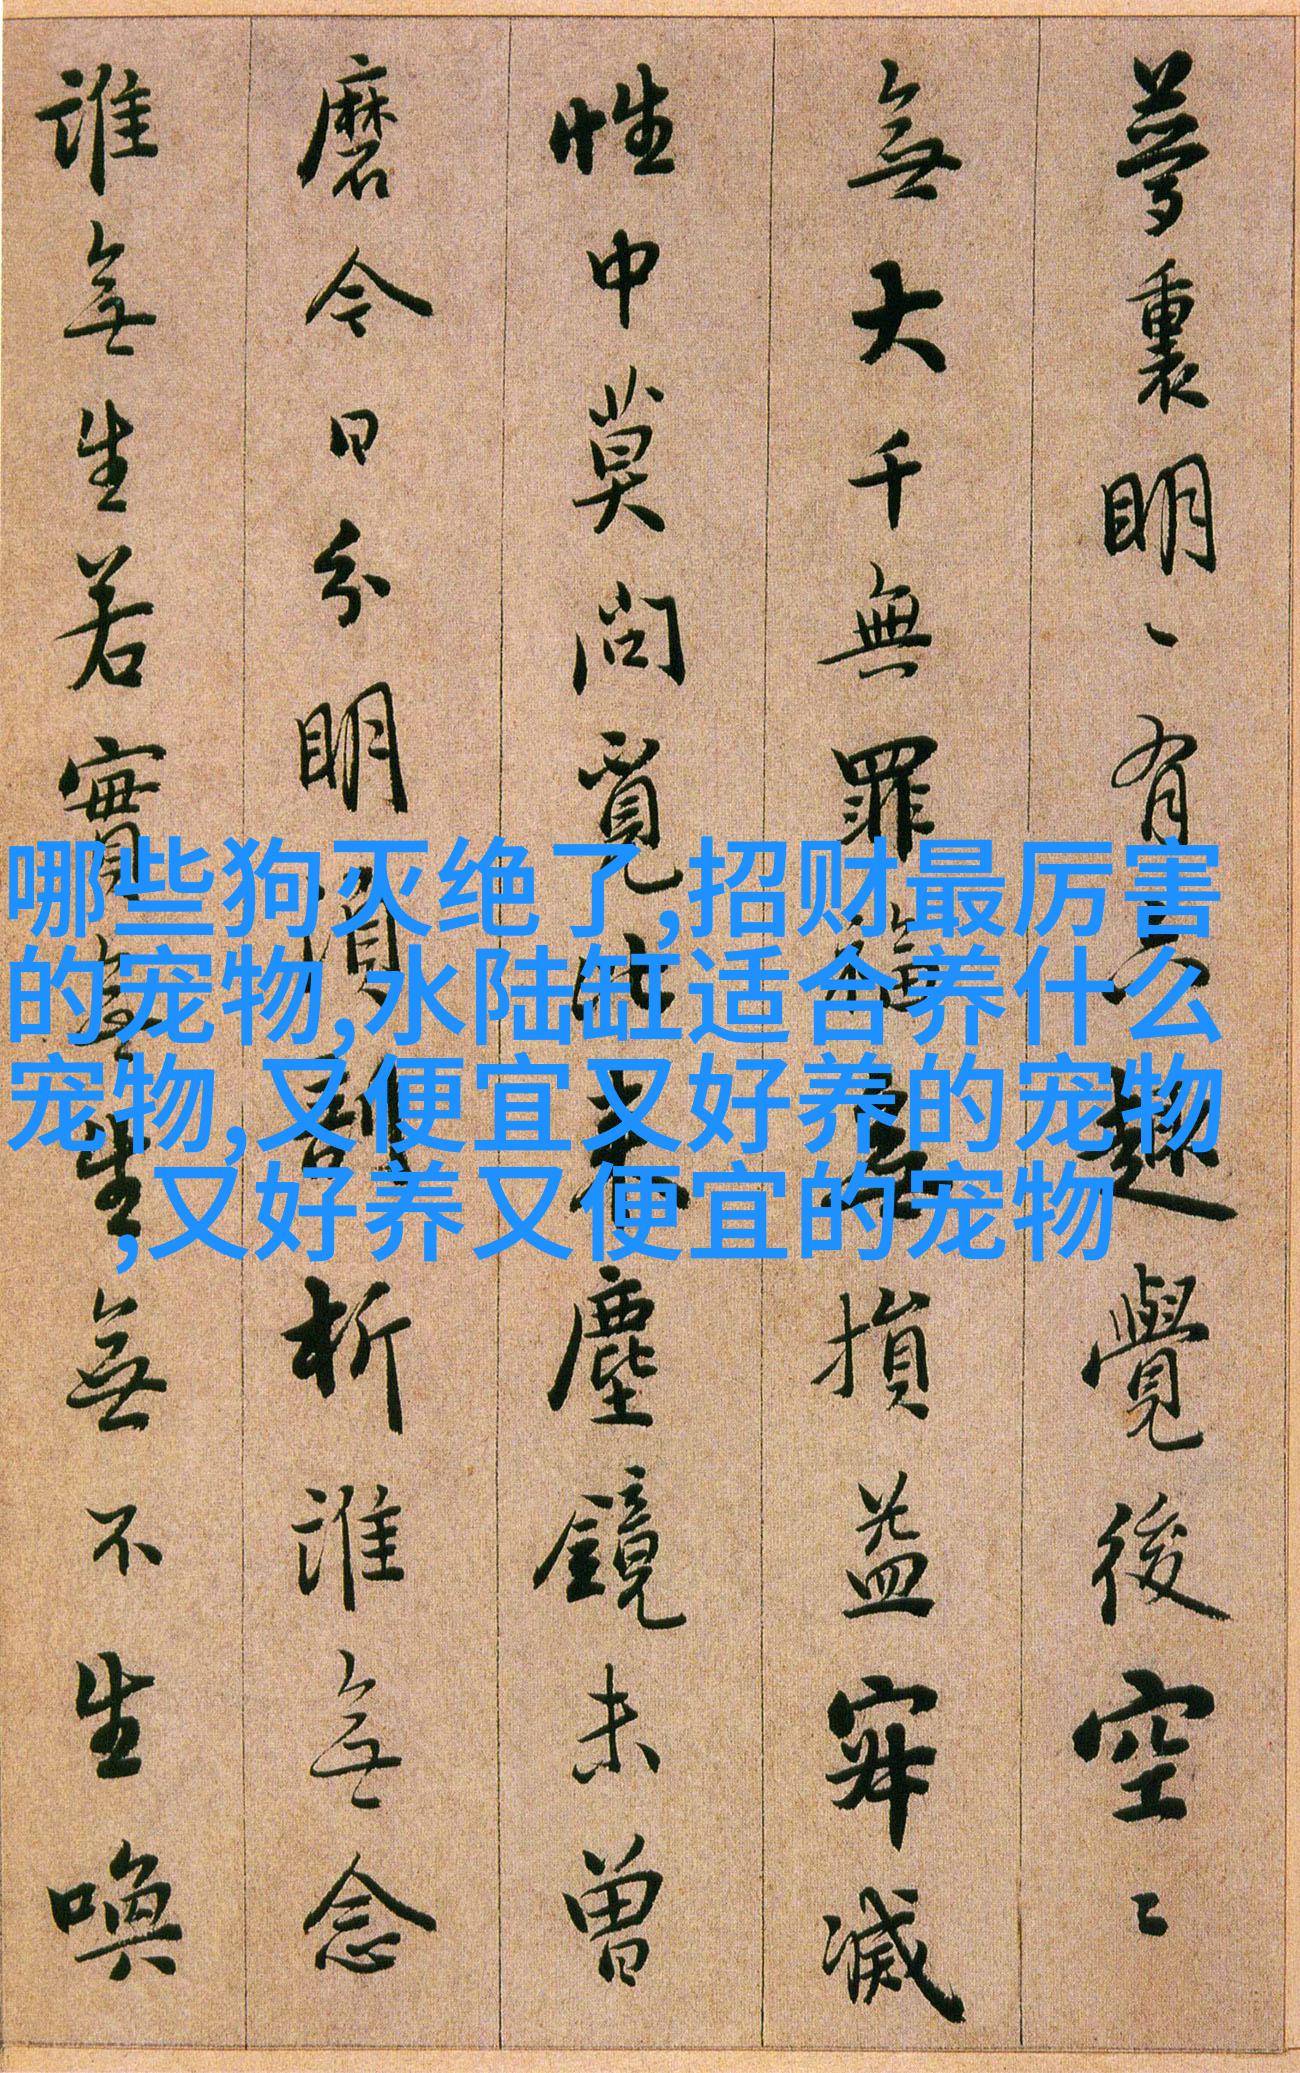 夢裏明〻有六趣覺後空〻
無大千無罪福無損益寂滅
性中莫問覓比来塵鏡未曾
磨今日分明須剖析誰無念
誰無生若實無生無不生喚
哪些狗灭绝了,招财最厉害
的宠物,水陆缸适合养什么
宠物,又便宜又好养的宠物
,又好养又便宜的宠物